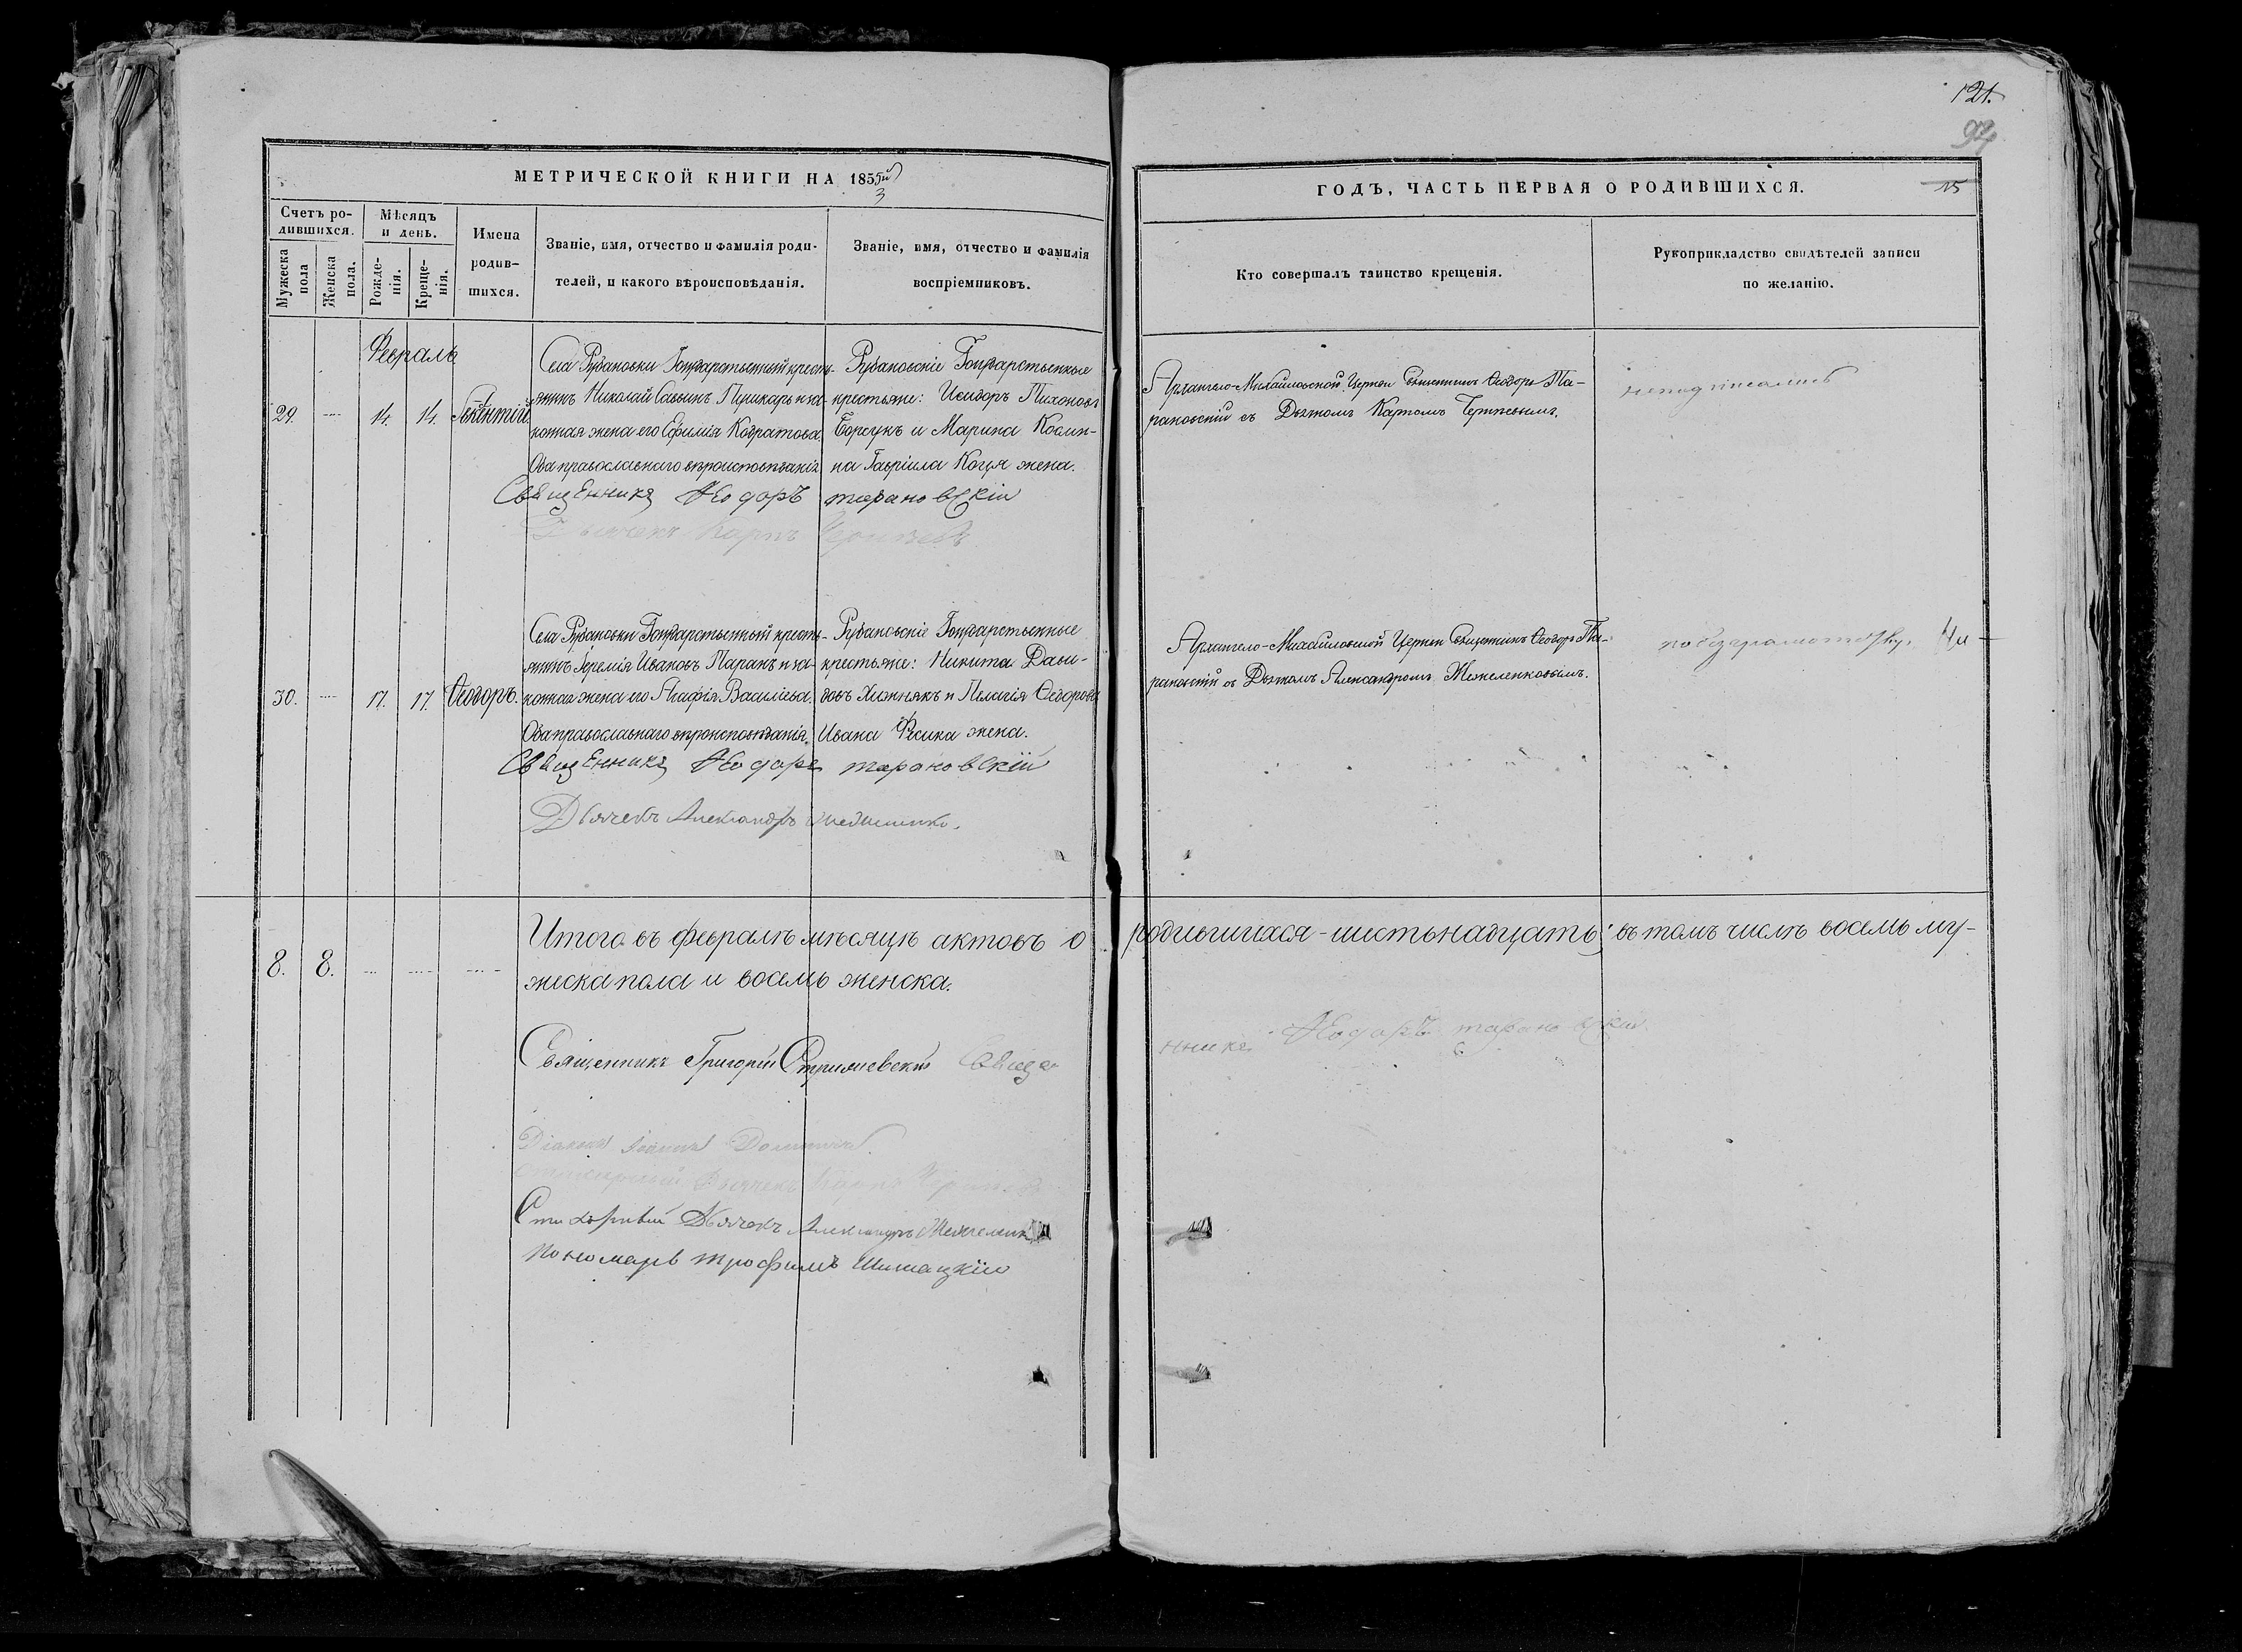 121.
94
МЕТРИЧЕСКОЙ КНИГИ НА 1855й
3
ГОДЪ, ЧАСТЬ ПЕРВАЯ О РОДИВШИХСЯ.
15
Счетъ ро-
дившихся.
Мужеска
пола
Женска
пола.
Мѣсяцъ
и день.
Рожде-
нія.
Креще-
нія.
Имена
родив-
шихся.
Званіе, имя, отчество и фамилія роди-
телей, и какого вѣроисповѣданія.
Званіе, имя, отчество и фамилія
воспріемниковъ.
Кто совершалъ таинство крещенія.
Рукоприкладство свидѣтелей записи
по желанію.
Февраль
29. 14. 14.
Села Рубановки Государственный кресть-
янинъ Николай Саввинъ Пушкарь и за-
конная жена его Ефимія Кодратова.
Оба православнаго вѣроисповѣданія.
Рубановскіе Государственные
крестьяне: Исидоръ Тихоновъ
Борсукъ и Марина Косми-
на Гавріила Коця жена.
Архангело-Михайловской Церкви Священникъ Ѳеодоръ Та-
рановскій съ Дьякомъ Карпомъ
неподписались
Священникъ Ѳеодоръ тарановскій
Дьячекъ Карпъ
30. 17. 17. Ѳеодоръ.
Села Рубановки Государственный кресть-
янинъ Іеремія Ивановъ Таранъ и за-
конная жена его Агафія Васильева.
Оба православнаго вѣроисповѣданія.
Рубановскіе Государственные
крестьяне: Никита Дави-
довъ Хижнякъ и Пелагія Ѳеодорова
Ивана Фесика жена.
Архангело-Михайловской Церкви Священникъ Ѳеодоръ Та-
рановскій съ Дьякомъ Александромъ
Священникъ Ѳеодоръ тарановскій
Дьячекъ Александръ
8. 8.
Итого въ февралѣ мѣсяцѣ актовъ о родившихся - шестьнадцать; въ томъ числѣ восемь му-
жеска пола и восемь женска.
Священникъ Григорій Стришевскій Свяще
нникъ Ѳеодоръ тарановскій
Діаконъ Іоаннъ
Стихарный Дьячекъ Карпъ
Стихарный Дьячекъ Александръ
Пономарь Трофимъ Шишацкій